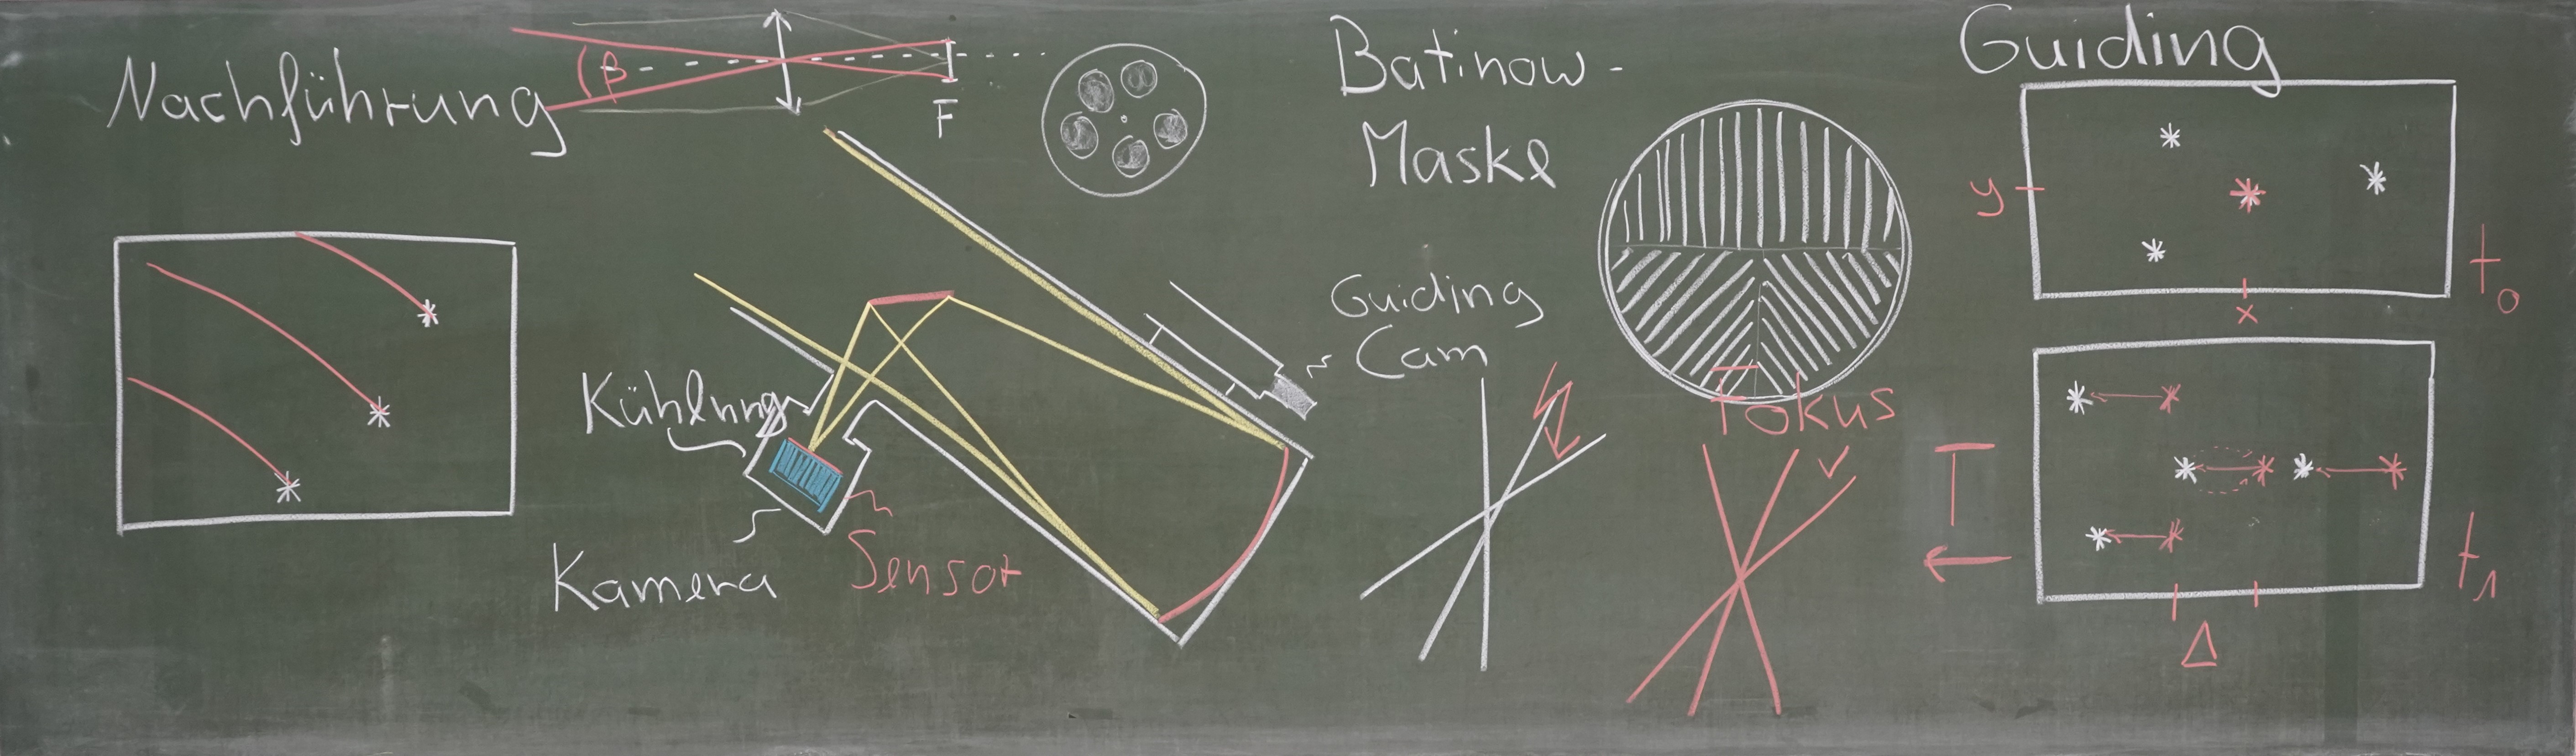 Nachführung
β
F
Batinow-
Maske
Guiding
y
x
t0
Guiding
Cam
Kühlung
Kamera
Sensor
Fokus
T
t1
Δ